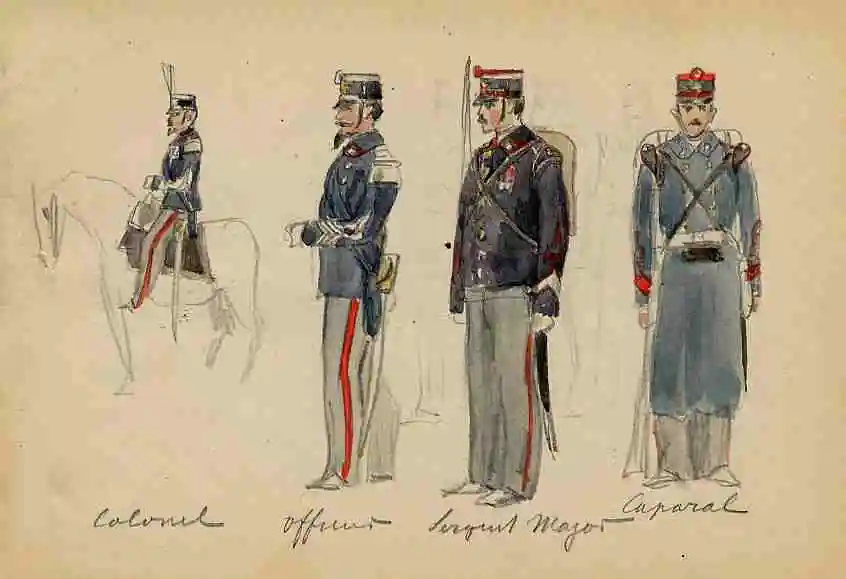 Colonel
Officier
Sergent Major
Caporal